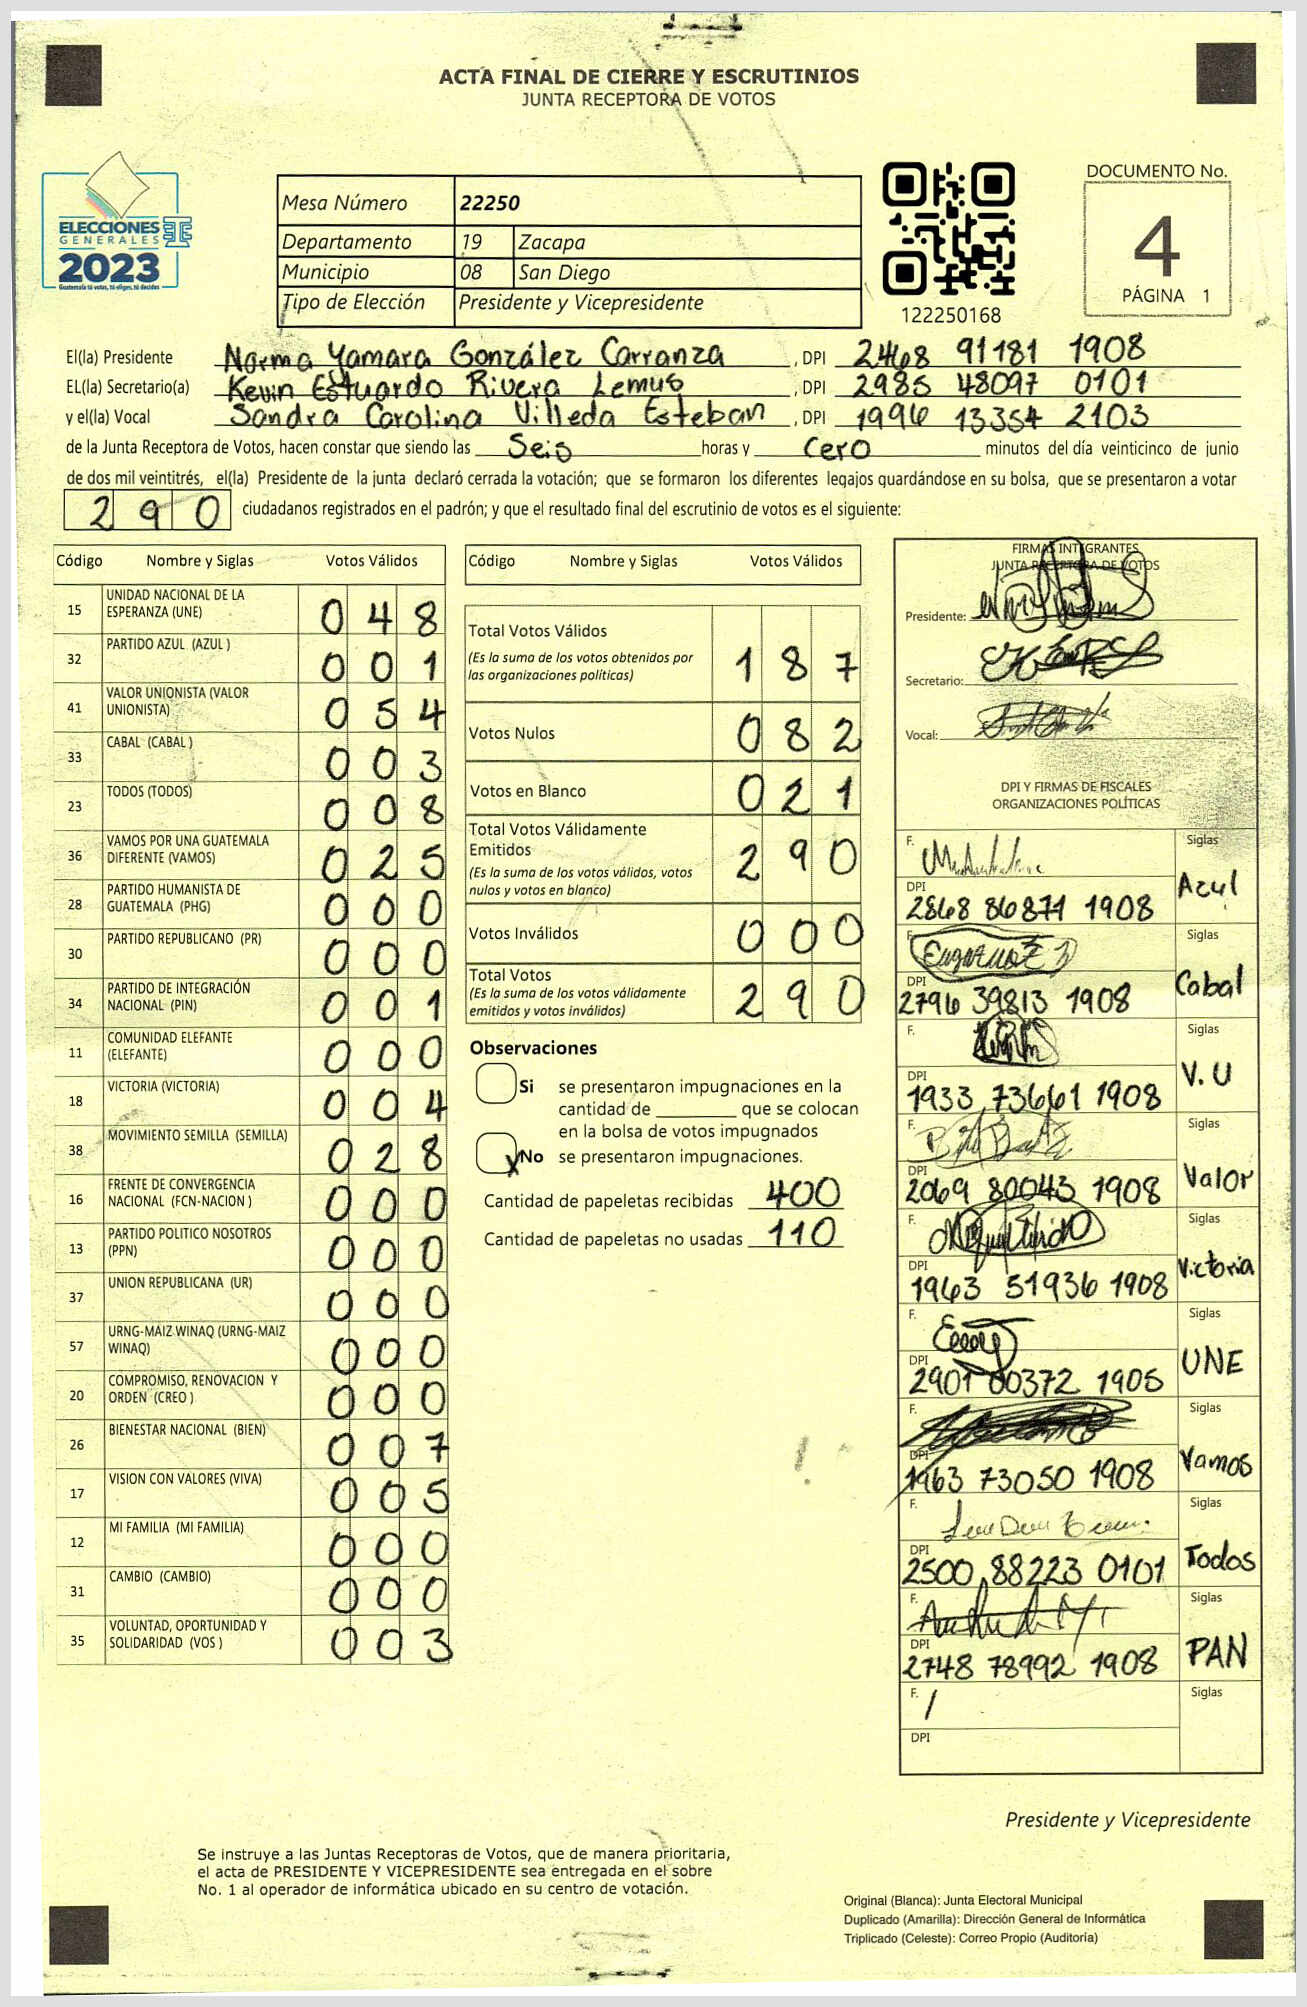 ACTA FINAL DE CIERRE Y ESCRUTINIOS
JUNTA RECEPTORA DE VOTOS
ELECCIONES
GENERALES
2023
Guatemala tú votas, tú eliges, tú decides
Mesa Número 22250
Departamento 19 Zacapa
Municipio 08 San Diego
Tipo de Elección Presidente y Vicepresidente
122250168
DOCUMENTO No.
4
PÁGINA 1
El(la) Presidente Norma Yamara González Carranza, DPI 2468 91181 1908
EL(la) Secretario(a) Kevin Estuardo Rivera Lemus, DPI 2985 48097 0101
y el(la) Vocal Sandra Carolina Villeda Esteban, DPI 1996 13354 2103
de la Junta Receptora de Votos, hacen constar que siendo las Seis horas y Cero minutos del día veinticinco de junio
de dos mil veintitrés, el(la) Presidente de la junta declaró cerrada la votación; que se formaron los diferentes legajos guardándose en su bolsa, que se presentaron a votar
290 ciudadanos registrados en el padrón; y que el resultado final del escrutinio de votos es el siguiente:
Código Nombre y Siglas Votos Válidos
15 UNIDAD NACIONAL DE LA ESPERANZA (UNE) 048
32 PARTIDO AZUL (AZUL ) 001
41 VALOR UNIONISTA (VALOR UNIONISTA) 054
33 CABAL (CABAL ) 003
23 TODOS (TODOS) 008
36 VAMOS POR UNA GUATEMALA DIFERENTE (VAMOS) 025
28 PARTIDO HUMANISTA DE GUATEMALA (PHG) 000
30 PARTIDO REPUBLICANO (PR) 000
34 PARTIDO DE INTEGRACIÓN NACIONAL (PIN) 001
11 COMUNIDAD ELEFANTE (ELEFANTE) 000
18 VICTORIA (VICTORIA) 004
38 MOVIMIENTO SEMILLA (SEMILLA) 028
16 FRENTE DE CONVERGENCIA NACIONAL (FCN-NACION ) 000
13 PARTIDO POLITICO NOSOTROS (PPN) 000
37 UNION REPUBLICANA (UR) 000
57 URNG-MAIZ WINAQ (URNG-MAIZ WINAQ) 000
20 COMPROMISO, RENOVACION Y ORDEN (CREO ) 000
26 BIENESTAR NACIONAL (BIEN) 007
17 VISION CON VALORES (VIVA) 005
12 MI FAMILIA (MI FAMILIA) 000
31 CAMBIO (CAMBIO) 000
35 VOLUNTAD, OPORTUNIDAD Y SOLIDARIDAD (VOS ) 003
Código Nombre y Siglas Votos Válidos
Total Votos Válidos 187
(Es la suma de los votos obtenidos por
las organizaciones políticas)
Votos Nulos 082
Votos en Blanco 021
Total Votos Válidamente
Emitidos 290
(Es la suma de los votos válidos, votos
nulos y votos en blanco)
Votos Inválidos 000
Total Votos 290
(Es la suma de los votos válidamente
emitidos y votos inválidos)
Observaciones
Si se presentaron impugnaciones en la
cantidad de ________ que se colocan
en la bolsa de votos impugnados
X No se presentaron impugnaciones.
Cantidad de papeletas recibidas 400
Cantidad de papeletas no usadas 110
FIRMAS INTEGRANTES
JUNTA RECEPTORA DE VOTOS
Presidente:
Secretario:
Vocal:
DPI Y FIRMAS DE FISCALES
ORGANIZACIONES POLÍTICAS
F. Siglas
DPI 2868 86871 1908 Azul
F. Siglas
DPI 2796 39813 1908 Cabal
F. Siglas
DPI 1933 73661 1908 V.U
F. Siglas
DPI 2069 80043 1908 Valor
F. Siglas
DPI 1963 51936 1908 Victoria
F. Siglas
DPI 2901 00372 1905 UNE
F. Siglas
DPI 1963 73050 1908 Vamos
F. Siglas
DPI 2500 88223 0101 Todos
F. Siglas
DPI 2748 78992 1908 PAN
F. / Siglas
DPI
Presidente y Vicepresidente
Se instruye a las Juntas Receptoras de Votos, que de manera prioritaria,
el acta de PRESIDENTE Y VICEPRESIDENTE sea entregada en el sobre
No. 1 al operador de informática ubicado en su centro de votación.
Original (Blanca): Junta Electoral Municipal
Duplicado (Amarilla): Dirección General de Informática
Triplicado (Celeste): Correo Propio (Auditoría)